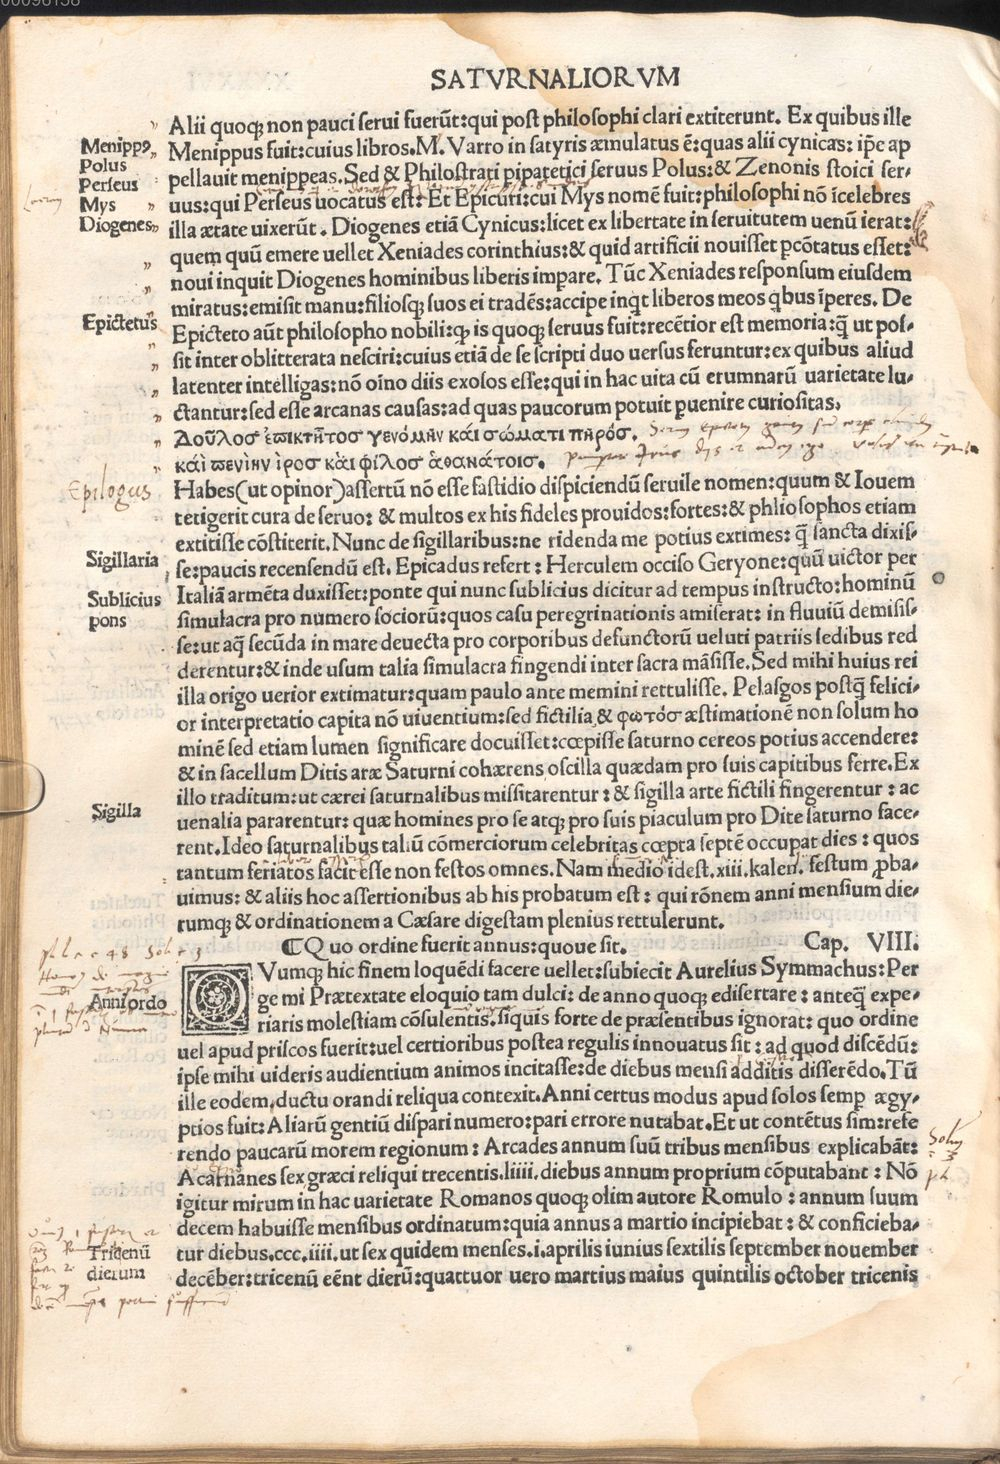 SATVRNALIORVM
Alii quoq; non pauci serui fuerūt:qui post philosophi clari extiterunt. Ex quibus ille
Menippus fuit:cuius libros.M. Varro in satyris æmulatus ē:quas alii cynicas: ip̄e ap
pellauit menippeas. Sed & Philostrati pipatetici seruus Polus:& Zenonis stoici ser-
uus:qui Perseus uocatus est: Et Epicuri:cui Mys nomē fuit:philosophi nō īcelebres
illa ætate uixerūt. Diogenes etiā Cynicus:licet ex libertate in seruitutem uenū ierat:
quem quū emere uellet Xeniades corinthius:& quid artificii nouisset pcōtatus esset:
noui inquit Diogenes hominibus liberis impare. Tūc Xeniades responsum eiusdem
miratus:emisit manu:filiosq; suos ei tradēs:accipe inqt liberos meos qbus īperes. De
Epicteto aūt philosopho nobili:q; is quoq; seruus fuit:recētior est memoria:q̄ ut pos-
sit inter oblitterata nesciri:cuius etiā de se scripti duo uersus feruntur:ex quibus aliud
latenter intelligas:nō oīno diis exosos esse:qui in hac uita cū erumnarū uarietate lu-
ctantur:sed esse arcanas causas:ad quas paucorum potuit puenire curiositas.
Δοῦλοσ ἐπικτῆτοσ γενόμην κάι σώματι πηρόσ.
κὰι πενίην ἶροσ κὰι φίλοσ ἀθανάτοισ.
Habes(ut opinor)assertū nō esse fastidio dispiciendū seruile nomen:quum & Iouem
tetigerit cura de seruo: & multos ex his fideles prouidos:fortes:& phliosophos etiam
extitisse cōstiterit. Nunc de sigillaribus:ne ridenda me potius extimes: q̄ sancta dixis-
se:paucis recensendū est. Epicadus refert : Herculem occiso Geryone:quū uictor per
Italiā armēta duxisset:ponte qui nunc sublicius dicitur ad tempus instructo:hominū
simulacra pro numero sociorū:quos casu peregrinationis amiserat: in fluuiū demisis-
se:ut aq̄ secūda in mare deuecta pro corporibus defunctorū ueluti patriis sedibus red
derentur:& inde usum talia simulacra fingendi inter sacra māsisse. Sed mihi huius rei
illa origo uerior extimatur:quam paulo ante memini rettulisse. Pelasgos postq̄ felici-
or interpretatio capita nō uiuentium:sed fictilia & φωτόσ æstimationē non solum ho
minē sed etiam lumen significare docuisset:cœpisse saturno cereos potius accendere:
& in sacellum Ditis aræ Saturni cohærens oscilla quædam pro suis capitibus ferre. Ex
illo traditum:ut cærei saturnalibus missitarentur : & sigilla arte fictili fingerentur : ac
uenalia pararentur: quæ homines pro se atq; pro suis piaculum pro Dite saturno face-
rent. Ideo saturnalibus taliū cōmerciorum celebritas cœpta septē occupat dies : quos
tantum feriatos facit esse non festos omnes. Nam medio idest.xiii.kalen. festum pba-
uimus: & aliis hoc assertionibus ab his probatum est : qui rōnem anni mensium die-
rumq; & ordinationem a Cæsare digestam plenius rettulerunt.
¶Quo ordine fuerit annus:quoue sit. Cap. VIII.
QVumq; hic finem loquēdi facere uellet:subiecit Aurelius Symmachus:Per
ge mi Prætextate eloquio tam dulci: de anno quoq; edisertare : anteq̄ expe-
riaris molestiam cōsulentis. siquis forte de præsentibus ignorat: quo ordine
uel apud priscos fuerit:uel certioribus postea regulis innouatus sit : ad quod discēdū:
ipse mihi uideris audientium animos incitasse:de diebus mensi additis disserēdo. Tū
ille eodem ductu orandi reliqua contexit. Anni certus modus apud solos semp ægy-
ptios fuit: Aliarū gentiū dispari numero:pari errore nutabat. Et ut contētus sim:refe
rendo paucarū morem regionum : Arcades annum suū tribus mensibus explicabāt:
Acarnanes sex græci reliqui trecentis.liiii.diebus annum proprium cōputabant : Nō
igitur mirum in hac uarietate Romanos quoq; olim autore Romulo : annum suum
decem habuisse mensibus ordinatum:quia annus a martio incipiebat : & conficieba-
tur diebus.ccc.iiii.ut sex quidem menses.i.aprilis iunius sextilis september nouember
decēber:tricenū eēnt dierū:quattuor uero martius maius quintilis october tricenis
Menippꝰ
Polus
Perseus
Mys
Diogenes
Epictetus
Epilogus
Sigillaria
Sublicius
pons
Sigilla
Anni ordo
Tricenū
dierum